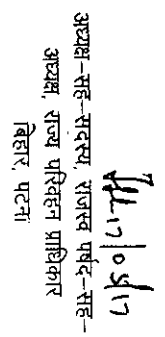 अध्यक्ष–सह–सदस्य, राजस्व पर्षद–सह–
अध्यक्ष, राज्य परिवहन प्राधिकार
बिहार, पटना